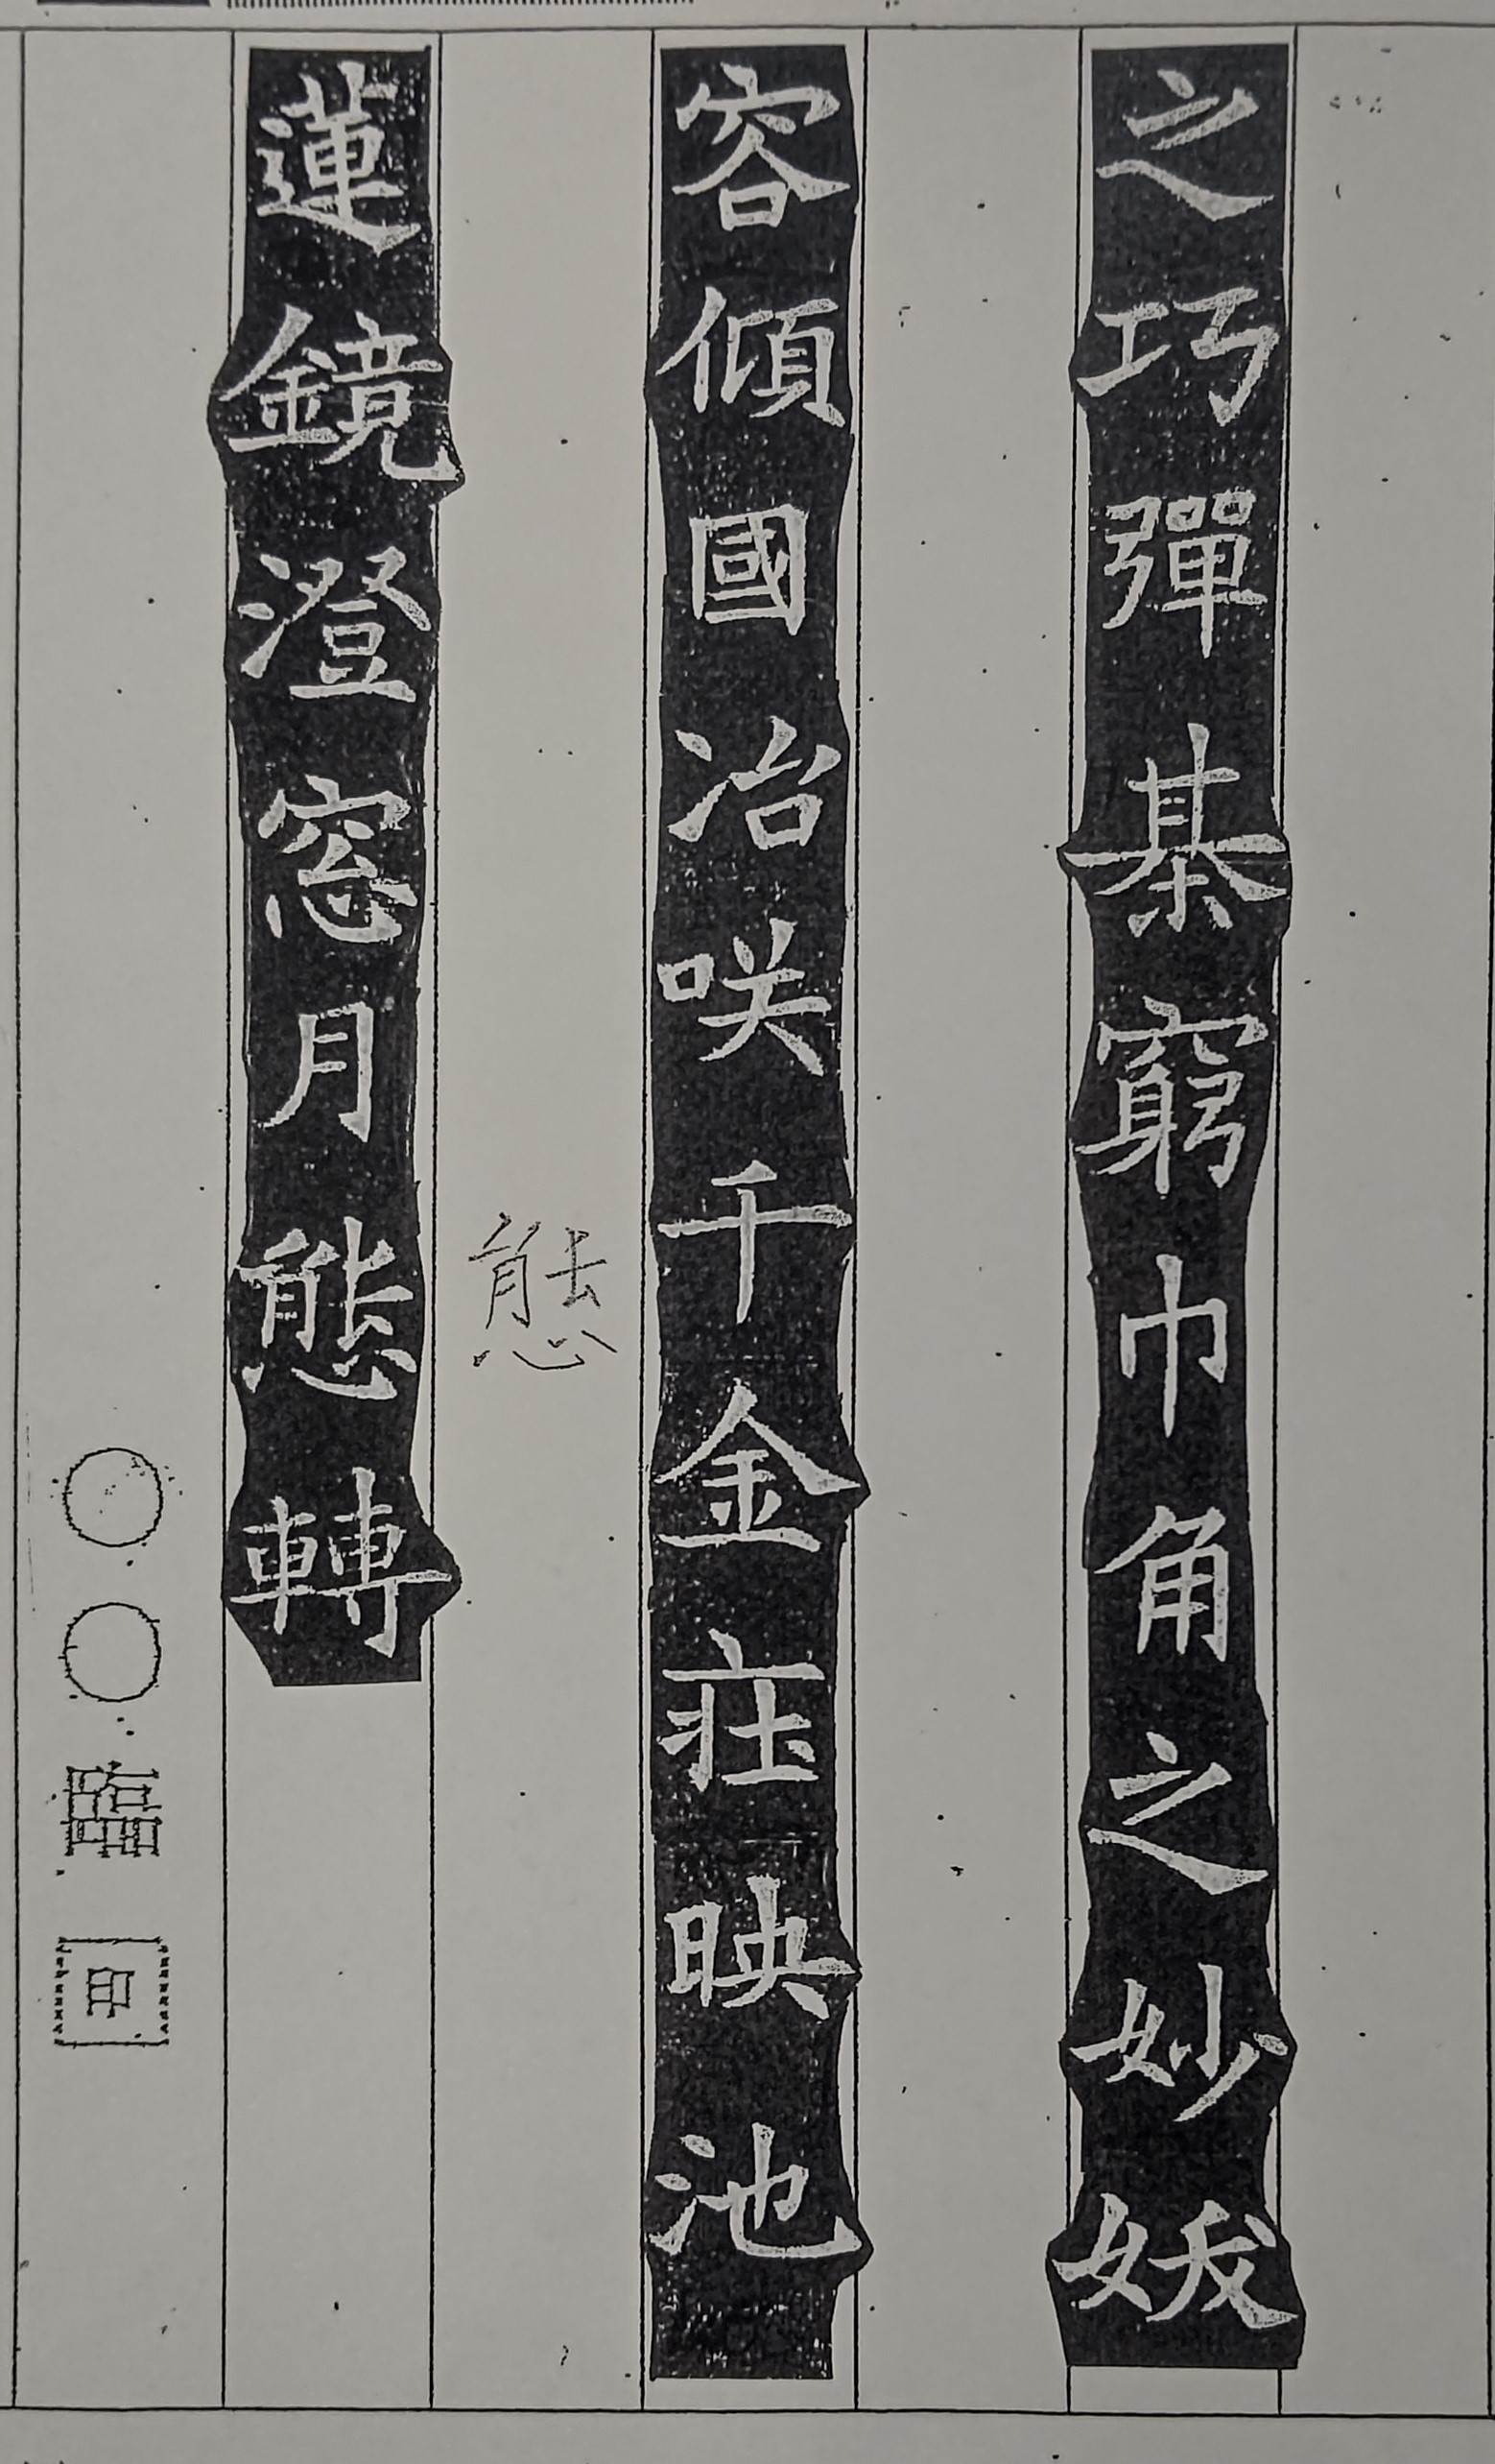 之巧彈棊窮巾角之妙妭
容傾國冶咲千金莊映池
蓮鏡澄窓月態轉
態
〇〇臨印